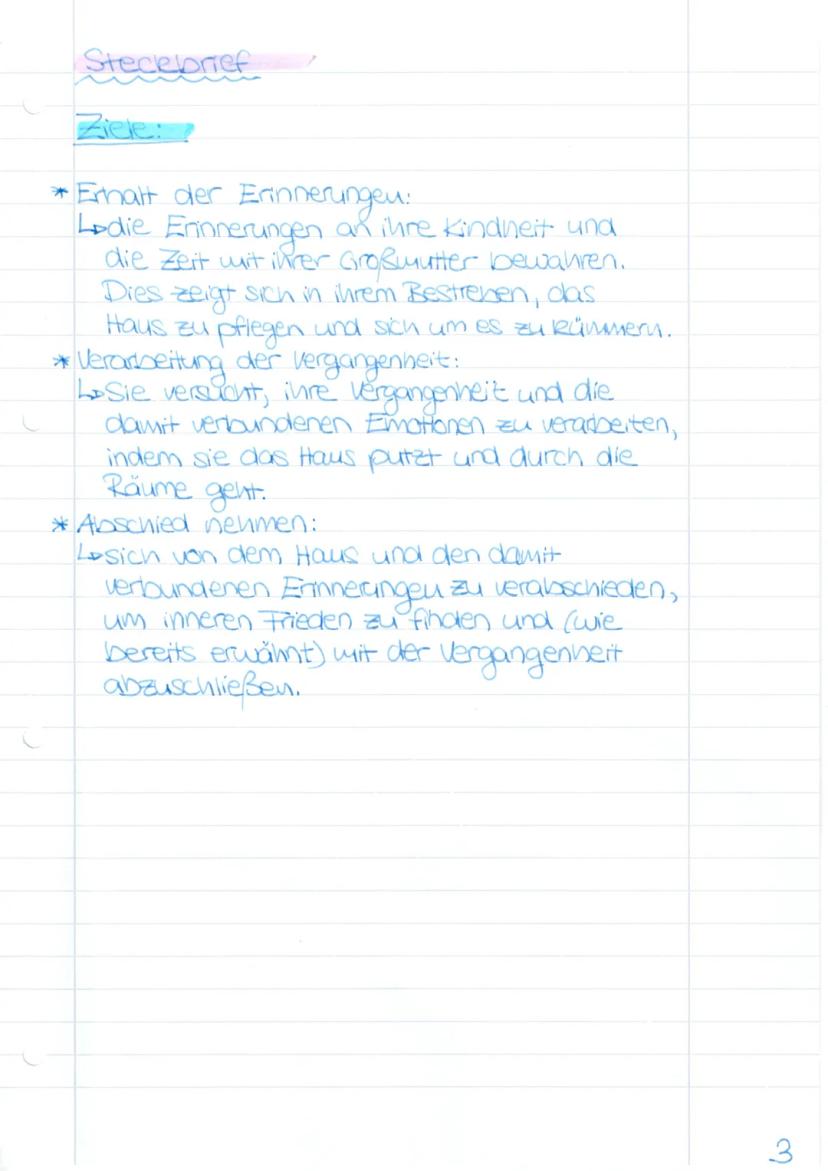 Steckbrief
Ziele:
* Erhalt der Erinnerungen:
↳ die Erinnerungen an ihre Kindheit und
die Zeit mit ihrer Großmutter bewahren.
Dies zeigt sich in ihrem Bestreben, das
Haus zu pflegen und sich um es zu kümmern.
* Verarbeitung der Vergangenheit:
↳ Sie versucht, ihre Vergangenheit und die
damit verbundenen Emotionen zu verarbeiten,
indem sie das Haus putzt und durch die
Räume geht.
* Abschied nehmen:
↳ sich von dem Haus und den damit
verbundenen Erinnerungen zu verabschieden,
um inneren Frieden zu finden und (wie
bereits erwähnt) mit der Vergangenheit
abzuschließen.
3